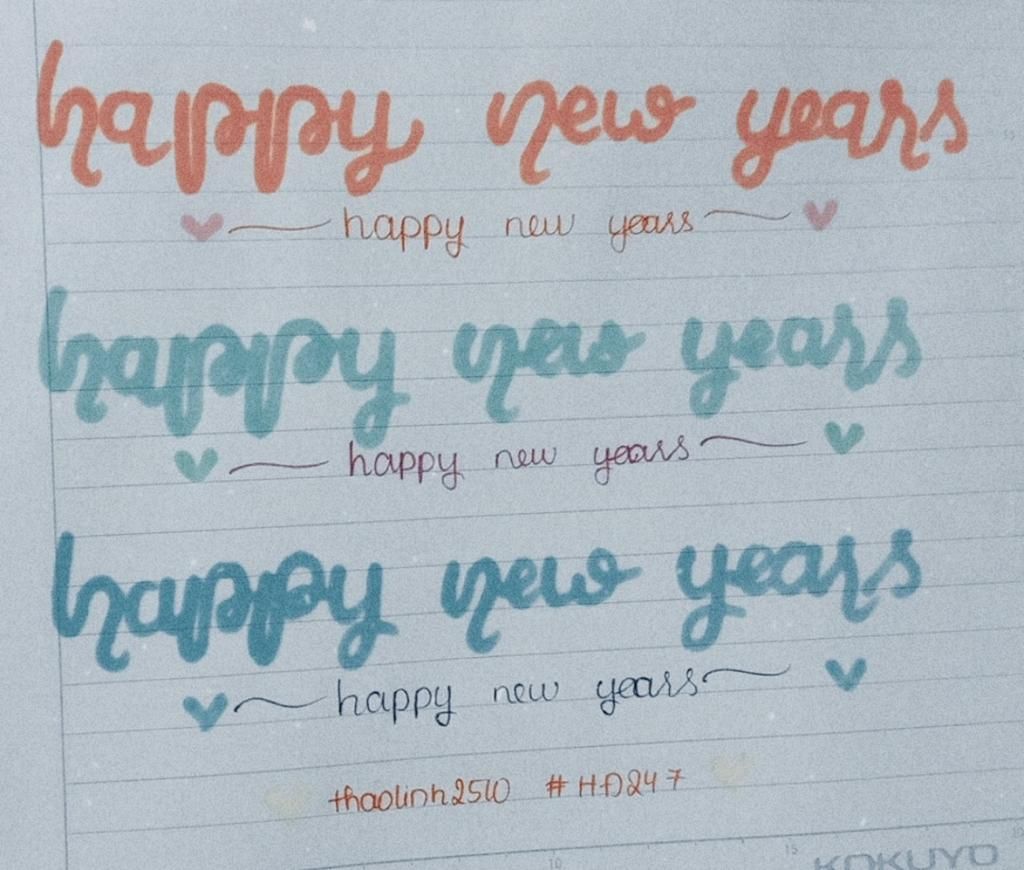 happy new years
happy new years
happy new years
happy new years
happy new years
happy new years
thaolinh2510 #HĐ247
10 15 20
KOKUYO